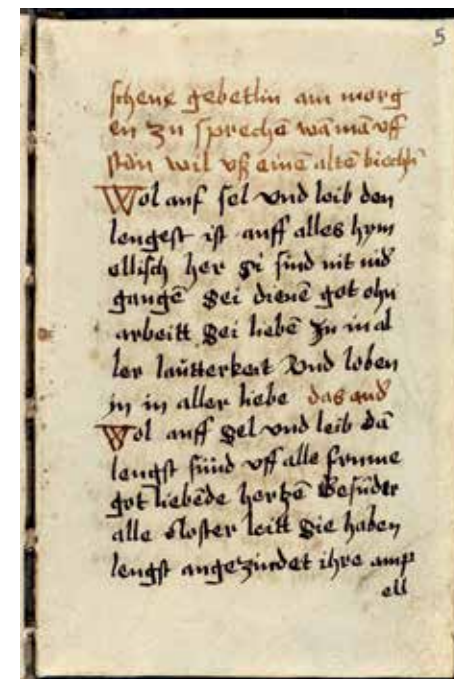 5
schene gebetlin am morg
en zu sprechē wā mā uff
stān wil uß einē altē biechlī
Wol auf sel vnd leib den
lengest ist auff alles hym
ellisch her si sind nit nid
gangē sei dienē got ohn
arbeitt sei liebē in in al
ler laůtterkeit vnd loben
in in aller liebe das and
Wol auff sel vnd leib dā
lengst sind vff alle frume
got liebēde hertzē besūder
alle closter leitt sie haben
lengst angezindet ihre amp
ell